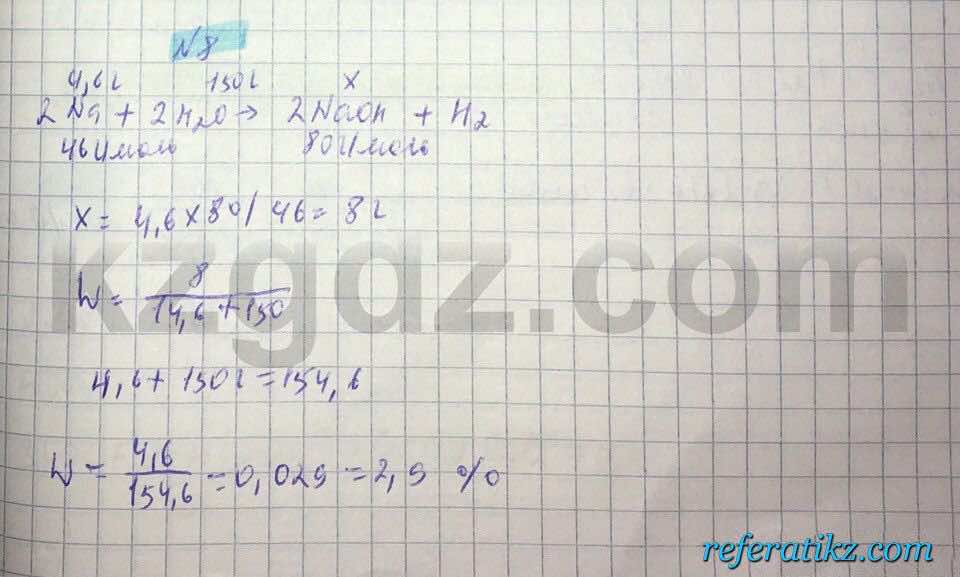 N8
4,6г 150г x
2Na + 2H2O → 2NaOH + H2
46г/моль 80г/моль
x = 4,6 x 80 / 46 = 8г
W = 8 / 14,6 + 150
4,6 + 150г = 154,6
W = 4,6 / 154,6 = 0,029 = 2,9 %
kzgdz.com
referatikz.com